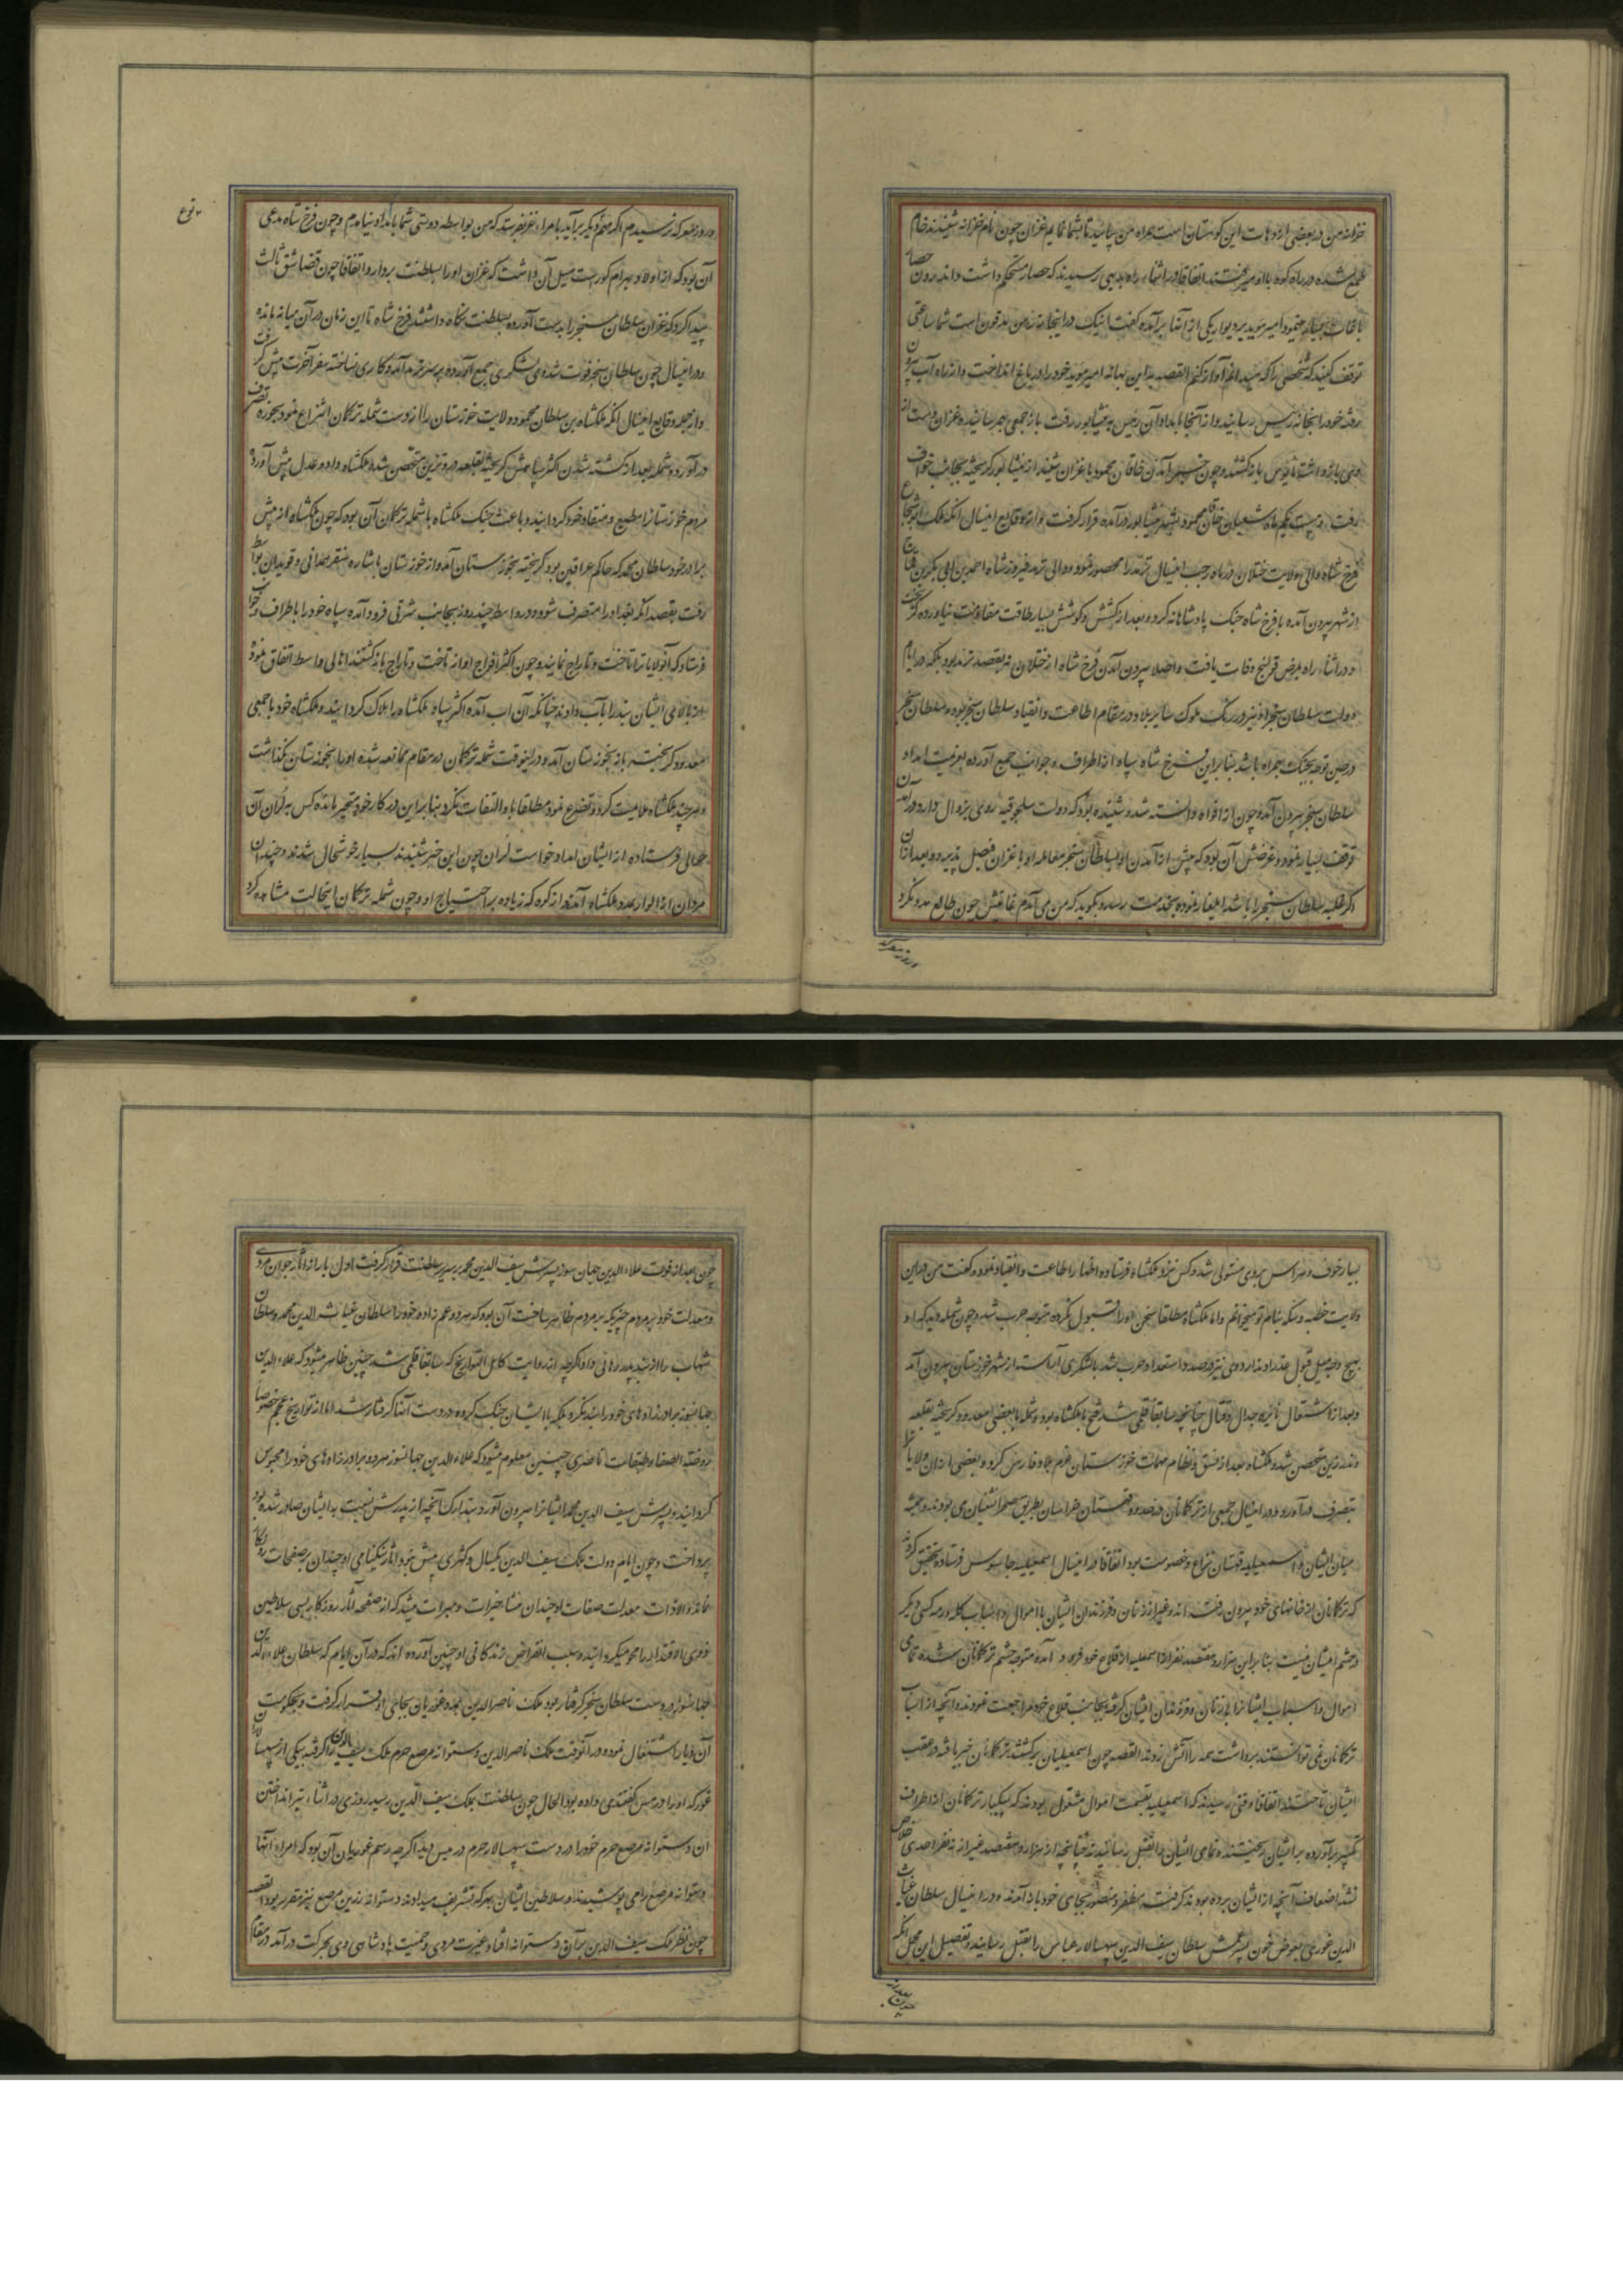 خزانه من در بعضی از دهات این کوهستان است همراه من بیایید تا بشما نمایم غزان چون نام خزانه شنیدند خام
طمع شده در راه کوه با او میرفتند اتفاقا در اثناء راه بدیهی رسیدند که حصار مستحکم داشت و اندرون حصار
باغات بسیار امیر موید بر دیوار یکی از آنها برآمده گفت اینک در اینجا زر من مدفون است شما ساعتی
توقف کنید که شخصی را که میدانم آواز کنم القصه باین بهانه امیر موید خود را در باغ انداخت و از راه آب بیرون
رفته خود را بخانه رئیس رسانید و از آنجا بامداد آن رئیس به نیشابور رفت باز جمعی بهم رسانیده غزان دست از
وی بازداشته مأیوس باز گشتند و چون خبر آمدن خاقان محمود با غزان شنید از نیشابور گریخته بجانب خواف
رفت و بیست یکم ماه شعبان خاقان محمود بشهر نیشابور درآمده قرار گرفت و از وقایع امسال آنکه ملک ابو شجاع
فرخ شاه والی ولایت ختلان در ماه رجب امسال ترمد را محصور نمود و والی ترمد فیروز شاه احمد بن ابی بکر بن قماج
از شهر بیرون آمده با فرخ شاه جنگ پادشاهانه کرد و بعد از کشش و کوشش بسیار طاقت مقاومت نیاورده گریخت
و در اثناء راه بمرض قولنج وفات یافت و اصلا بیرون آمدن فرخ شاه از ختلان نه بقصد ترمد بود بلکه در ایام
دولت سلطان سنجر او نیز در رنگ ملوک سایر بلاد در مقام اطاعت و انقیاد سلطان سنجر بود و سلطان سنجر
در حین توجه بجنگ همراه باشد بنابراین فرخ شاه سپاه از اطراف و جوانب جمع آورده بعزیمت امداد
سلطان سنجر بیرون آمد و چون از افواه دانسته شد و شنیده بود که دولت سلجوقیه روی بزوال دارد در آمدن
توقف بسیار نمود و غرضش آن بود که پیش از آمدن او بسلطان سنجر معامله او با غزان فیصل پذیرد و بعد از آن
اگر غلبه سلطان سنجر را باشد ایلغار نموده بخدمت رسد و بگوید که من می آمدم غایتش چون طالع مدد نکرد
و روز معرکه
و روز معرکه نرسیدم اگر مهم دیگر برآید بامراء غز بفرستد که من بواسطه دوستی شما بامداد او نیامدم و چون فرخ شاه مدعی
آن بود که از اولاد بهرام گور است میل آن داشت که غزان او را بسلطنت بردارد اتفاقا چون قضا شق ثالث
پیدا کرد و که غزان سلطان سنجر را بدست آورده بسلطنت نگاه داشتند فرخ شاه تا این زمان در آن میانه مانده
و در امسال چون سلطان سنجر فوت شد وی لشکری جمع آورده بر سر ترمد آمد و کاری نساخته سفر آخرت پیش گرفت
و از جمله وقایع امسال آنکه ملکشاه بن سلطان محمود ولایت خوزستان را از دست شمله ترکمان انتزاع نمود بحوزه تصرف
درآورد و شمله بعد از کشته شدن اکثر سپاهش گریخته بقلعه دندرزین متحصن شد و ملکشاه داد و عدل پیش آورده
مردم خوزستانرا مطیع و منقاد خود گردانید و باعث جنگ ملکشاه با شمله ترکمان آن بود که چون ملکشاه از پیش
برادر خود سلطان محمد که حاکم عراقین بود گریخته بخوزستان آمد و از خوزستان باشاره سنقر همدانی و قویدان بواسط
رفت بقصد آنکه بغداد را متصرف شود و در واسط چند روز بجانب شرقی فرود آمده سپاه خود را باطراف و جوانب
فرستاد که آنولایاترا تاخت و تاراج نمایند و چون اکثر افواج او از تاخت و تاراج بازگشتند اهالی واسط اتفاق نموده
از بالا می ایشان بند را بآب دادند چنانکه آن آب آمده اکثر سپاه ملکشاه را هلاک گردانید و ملکشاه خود با جمعی
معدود گریخته باز بخوزستان آمد و دراینوقت شمله ترکمان در مقام ممانعه شده او را بخوزستان نگذاشت
و هر چند ملکشاه ملامیت کرد و تضرع نمود مطلقا باو التفات نکرد بنابراین در کار خود متحیر مانده کس به لران آن
حوالی فرستاده از ایشان امداد خواست لران چون این خبر شنیدند بسیار خوشحال شدند و چندان
مردان از الوار بمدد ملکشاه آمدند از کوه که زیاده بر احتیاج او و چون شمله ترکمان اینحالت مشاهده کرد
بسیار خوف و هراس بر وی مستولی شد و کس نزد ملکشاه فرستاده اظهار اطاعت و انقیاد نمود و گفت من در این
ولایت خطبه و سکه بنام تو میخوانم و اما ملکشاه مطلقا سخن او را قبول نکرده متوجه حرب شد و چون شمله دید که او
بهیچ وجه میل قبول عذر او ندارد وی نیز در صدد استعداد حرب شد با لشکری آراسته از شهر خوزستان بیرون آمد
و بعد از اشتعال نایره جدال و قتال چنانچه سابقا قلمی شد فتح با ملکشاه بود و شمله با بعضی معدود گریخته بقلعه
دندرزین متحصن شد و ملکشاه بعد از نسق و نظام مهمات خوزستان عزم بلاد فارس کرد و بعضی از آن ولایات
بتصرف درآورد و در امسال جمعی از ترکمانان در حدود قهستان خراسان بطریق صحرا نشینان می بودند و همیشه
میان ایشان و اسمعیلیه قهستان نزاع و خصومت بود اتفاقا در امسال اسمعیلیه جاسوس فرستاده تحقیق کردند
که ترکمانان از خانهای خود بیرون رفته اند و غیر از زنان و فرزندان ایشان با اموال و اسباب گله و رمه کسی دیگر
در حشم ایشان نیست بنابراین هزار و هفتصد نفر از اسمعیلیه از قلاع خود فرود آمده متوجه حشم ترکمانان شده تمامی
اموال و اسباب ایشانرا با زنان و فرزندان ایشان گرفته بجانب قلاع خود مراجعت نمودند و آنچه از اسباب
ترکمانان نمی توانستند برداشت همه را آتش زدند القصه چون اسمعیلیان برگشتند ترکمانان خبر یافته در عقب
ایشان تاختند اتفاقا وقتی رسیدند که اسمعیلیه بقسمت اموال مشغول بودند که بیکبار ترکمانان از اطراف
تکبیر برآورده بر ایشان ریختند و تمامی ایشان را بقتل رسانیدند چنانچه از هزار و هفتصد غیر از نه نفر احدی خلاص
نشد و اضعاف آنچه از ایشان برده بودند گرفته مظفر و منصور بجای خود باز آمدند و در امسال سلطان غیاث
الدین غوری بعوض خون پسر عمش سلطان سیف الدین سپهسالار عباس را بقتل رسانید و تفصیل این مجمل آنکه
چون بعد از
چون بعد از فوت علاء الدین جهان سوز پسرش سیف الدین محمد بر سریر سلطنت قرار گرفت اول بار از آثار جوان مردی
و معدلت خود بر مردم چیزیکه بر مردم ظاهر ساخت آن بود که هر دو عم زاده خود را سلطان غیاث الدین محمد و سلطان
شهاب را از بند پدر رهانی داد و اگر چه از روایت کامل التواریخ که سابقا قلمی شد چنین ظاهر میشود که علاء الدین
جهانسوز برادرزادهای خود را بند نکرد بلکه با ایشان جنگ کرده در دست آنها گرفتار شد اما از تواریخ عجم خصوصا
روضة الصفا و طبقات ناصری چنین معلوم میشود که علاء الدین جهانسوز هر دو برادرزادهای خود را محبوس
گردانید و پسرش سیف الدین محمد ایشانرا بیرون آورد بتدارک آنچه از پدرش نسبت به ایشان صادر شده بود
پرداخت و چون ایام دولت ملک سیف الدین یکسال و کسری بیش نبود آثار نیکنامی او چندان بر صفحات روزگار
نماند و الا ذات معدلت صفات او چندان منشاء خیرات و مبرات میشد که از صفحه آثار روزگار بسی سلاطین
ذوی الاقتدار را محو میگردانید و سبب انقراض زندگانی او چنین آورده اند که در آن ایام که سلطان علاء الدین
جهانسوز در دست سلطان سنجر گرفتار بود ملک ناصر الدین محمد غوریان بجای او قرار گرفت و بحکومت
آن دیار اشتغال نموده در آنوقت ملک ناصر الدین دستوانه مرصع حرم ملک سیف الدین را گرفته بیکی از سپهسالاران
غور که او را درمیش گفتندی داده بود الحال چون سلطنت بملک سیف الدین رسید روزی در اثناء تیر انداختن
آن دستوانه مرصع حرم خود را در دست سپهسالار درمیش دید اگر چه رسم غوریان آن بود که امراء آنها
دستوانه مرصع را می پوشیدند و سلاطین ایشان بهر که تشریف میدادند دستوانه زرین مرصع نیز مقرر بود القصه
چون نظر ملک سیف الدین بر آن دستوانه افتاد غیرت مردی و حمیت پادشاهی وی بحرکت درآمد در مقام